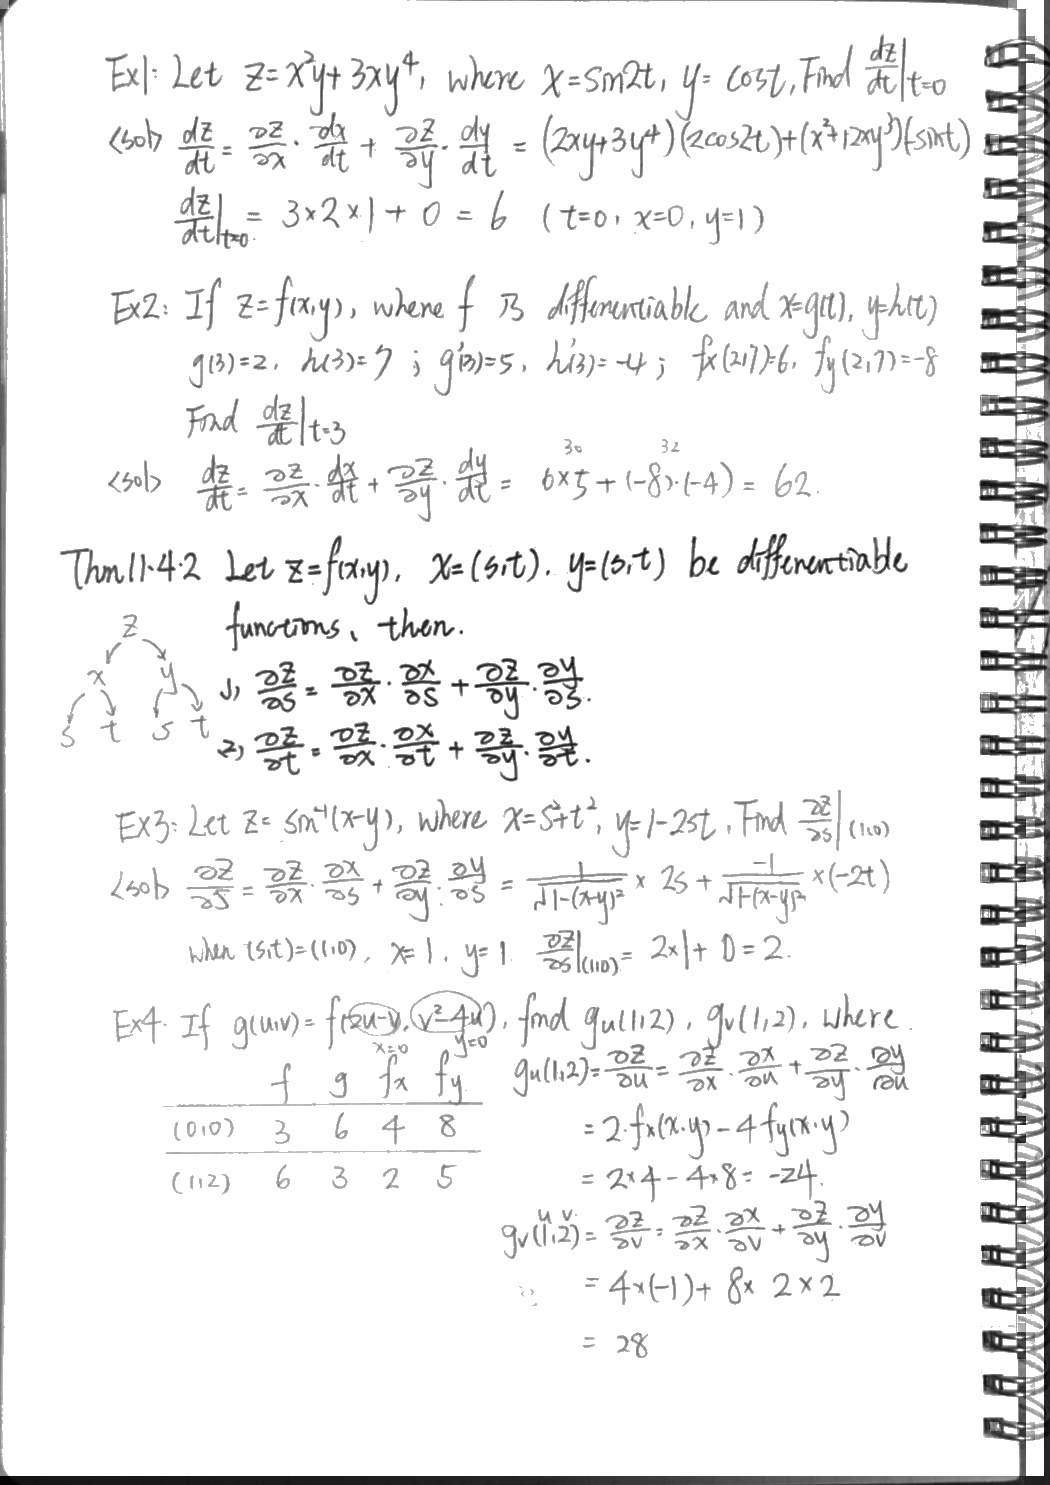 Ex1: Let z=x²y+3xy⁴, where x=sin2t, y=cost, Find dz/dt|t=0
<sol> dz/dt = ∂z/∂x · dx/dt + ∂z/∂y · dy/dt = (2xy+3y⁴)(2cos2t)+(x²+12xy³)(-sint)
dz/dt|t=0 = 3×2×1+0=6 (t=0, x=0, y=1)
Ex2: If z=f(x,y), where f is differentiable and x=g(t), y=h(t)
g(3)=2, h(3)=7 ; g'(3)=5, h'(3)=-4 ; fx(2,7)=6, fy(2,7)=-8
Find dz/dt|t=3
30 32
<sol> dz/dt = ∂z/∂x · dx/dt + ∂z/∂y · dy/dt = 6×5+(-8)·(-4)=62.
Thm11.4.2 Let z=f(x,y), x=(s,t), y=(s,t) be differentiable
functions, then.
z
x y
s t s t
1) ∂z/∂s = ∂z/∂x · ∂x/∂s + ∂z/∂y · ∂y/∂s.
2) ∂z/∂t = ∂z/∂x · ∂x/∂t + ∂z/∂y · ∂y/∂t.
Ex3: Let z=sin⁻¹(x-y), where x=s²+t², y=1-2st, Find ∂z/∂s|(1,0)
<sol> ∂z/∂s = ∂z/∂x · ∂x/∂s + ∂z/∂y · ∂y/∂s = 1/√1-(x-y)² × 2s + -1/√1-(x-y)² ×(-2t)
when (s,t)=(1,0), x=1, y=1 ∂z/∂s|(1,0) = 2×1+0=2.
Ex4. If g(u,v)=f(2u-v, v²-4u), find gu(1,2), gv(1,2), where.
x=0 y=0
f g fx fy
(0,0) 3 6 4 8
(1,2) 6 3 2 5
gu(1,2)= ∂z/∂u = ∂z/∂x · ∂x/∂u + ∂z/∂y · ∂y/∂u
=2·fx(x,y)-4fy(x,y)
=2×4-4×8=-24.
u v
gv(1,2)= ∂z/∂v = ∂z/∂x · ∂x/∂v + ∂z/∂y · ∂y/∂v
=4×(-1)+8×2×2
=28